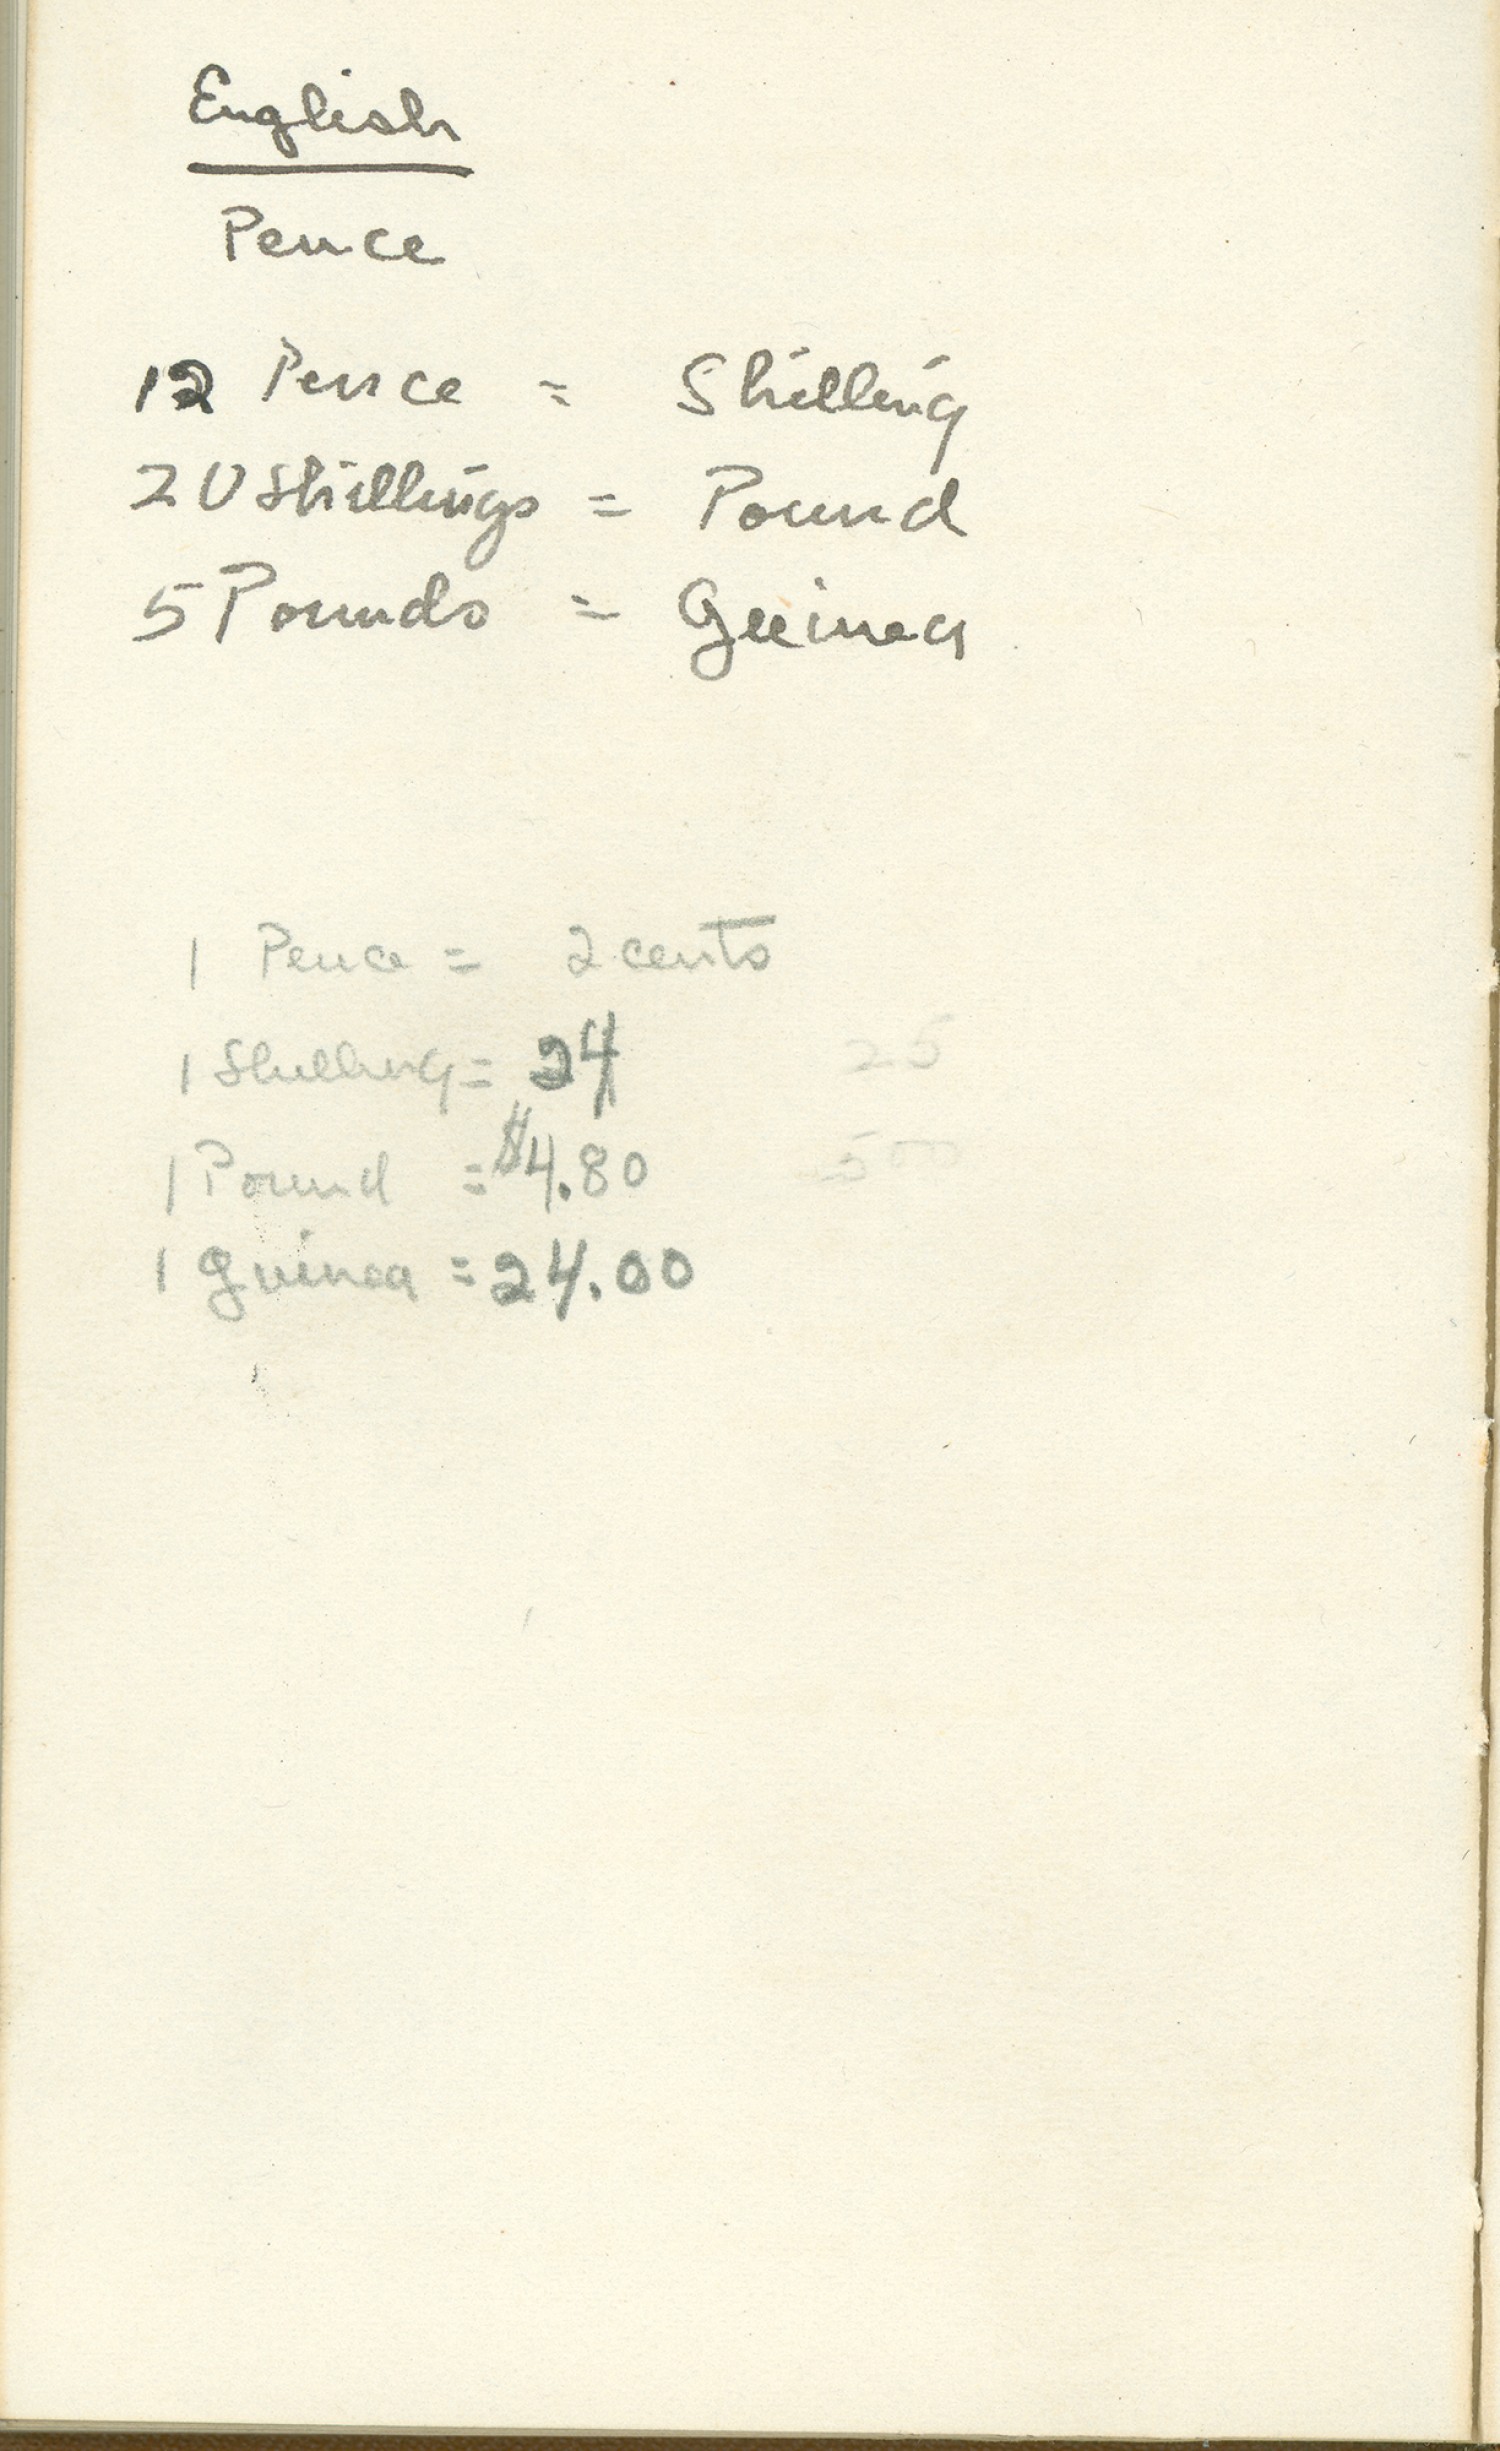 English
Pence
12 Pence = Shilling
20 Shillings = Pound
5 Pounds = Guinea
1 Pence = 2 cents
1 Shilling = 24 25
1 Pound = $4.80 500
1 Guinea = 24.00